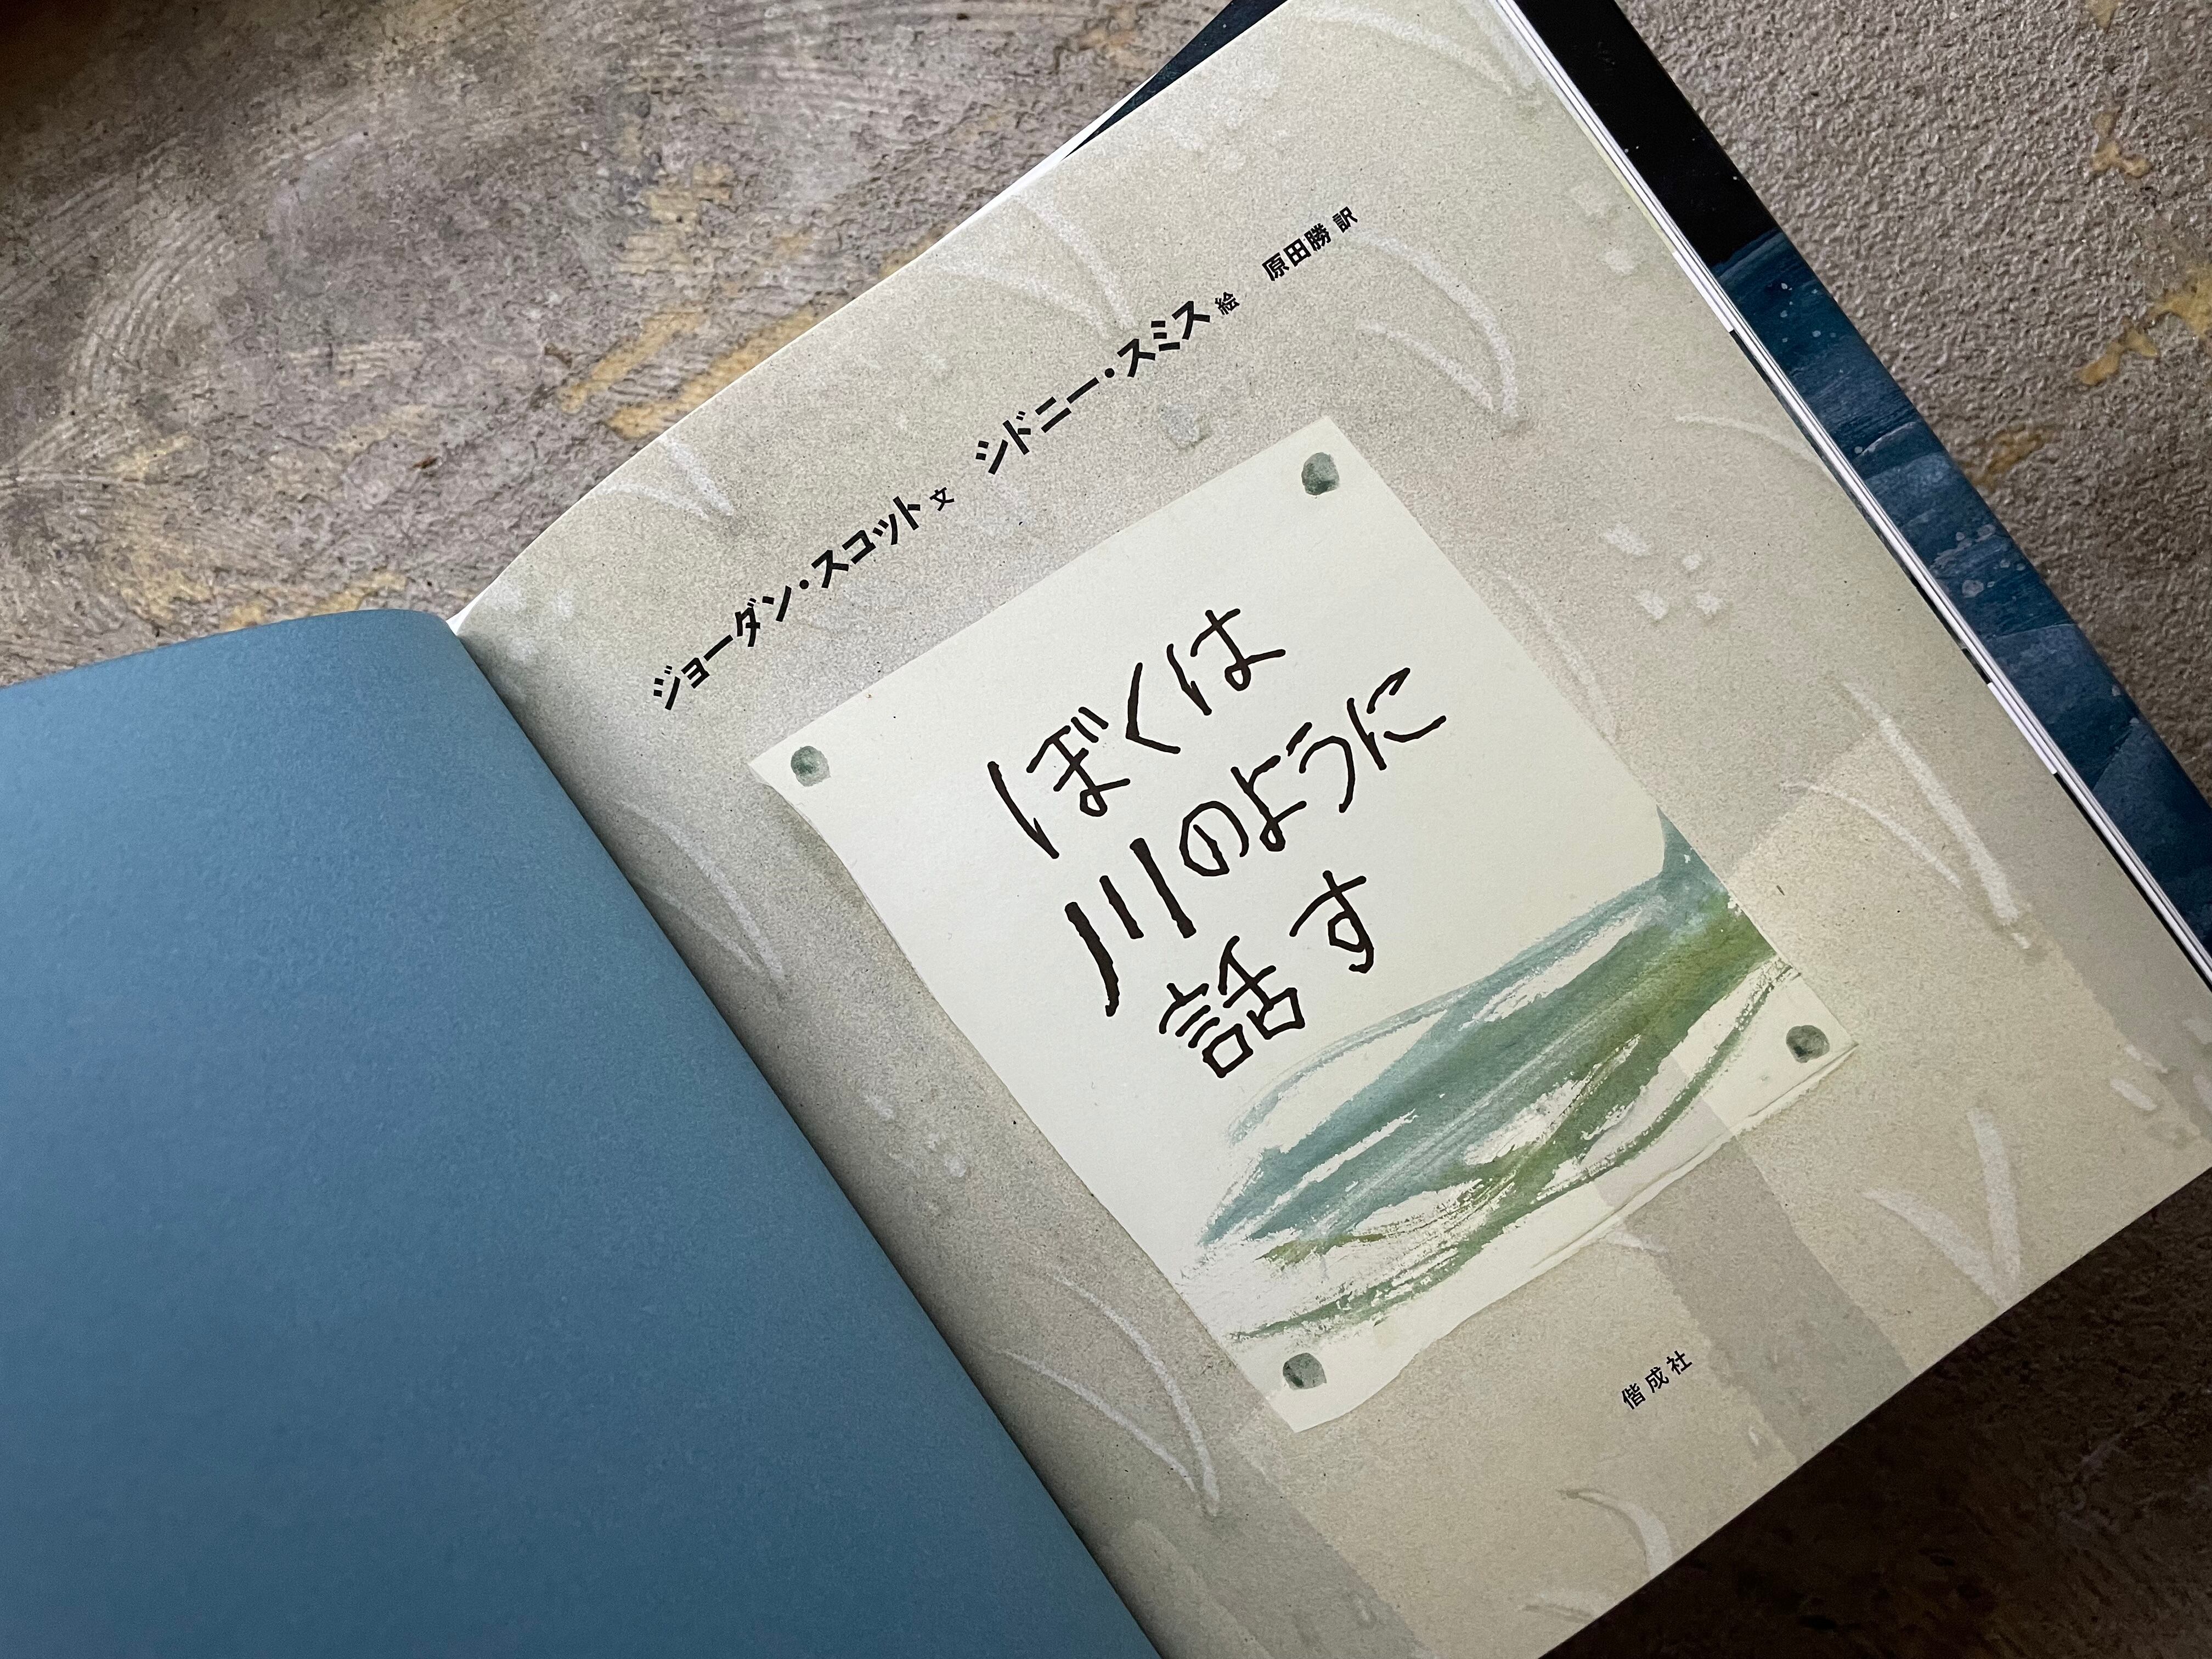 ジョーダン・スコット 文 シドニー・スミス 絵 原田勝 訳
ぼくは
川のように
話す
偕成社